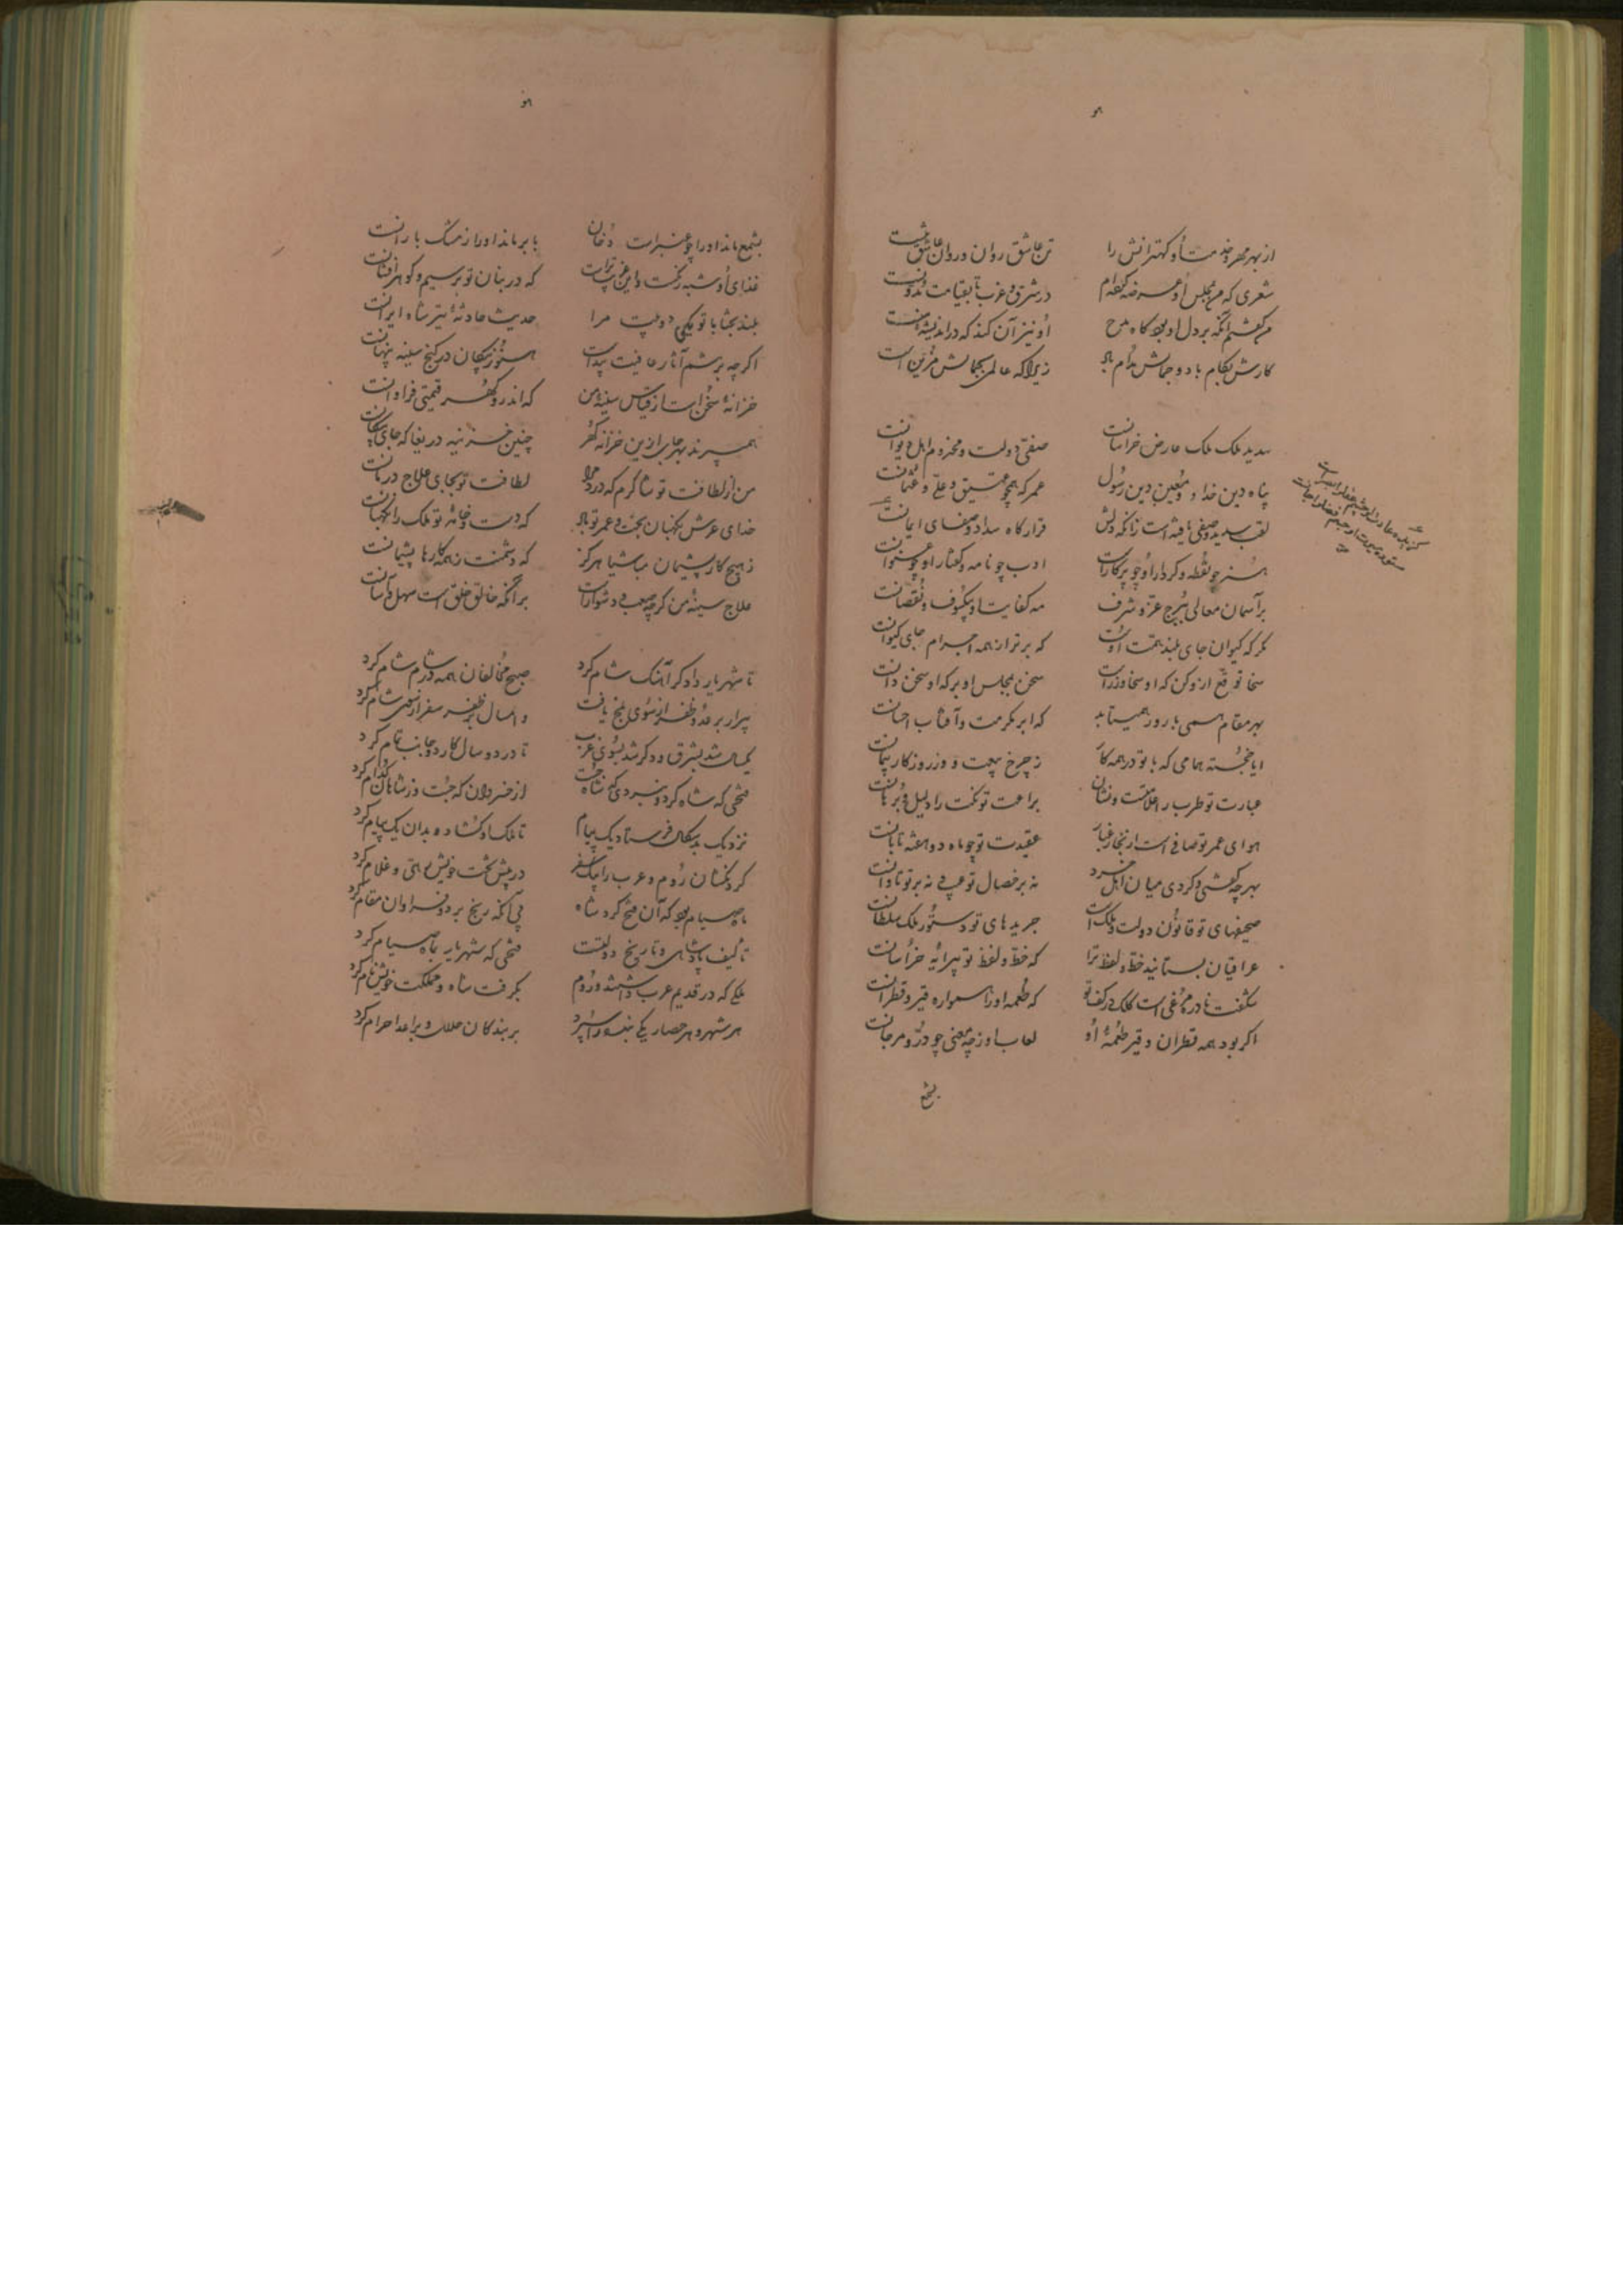 هو
از بهر مهر خدمت او کهترانش را تن عاشق روان و روان عاشق تنست
شعری که من بمجلس او عرضه کرده‌ام در شرق و غرب تا بقیامت مدونست
من گفتم آنکه بر دل او بود گاه مدح او نیز آن کند که در اندیشه منست
کارش بکام باد و جمالش مدام باد زیرا که عالمی بجمالش مزین است
سدید ملک ملک عارض خراسانست صفی دولت و مخدوم اهل دیوانست
پناه دین خدا و معین دین رسول عمر که همچو عتیق و علی و عثمانست
لقب سدید و صفی یافته است زانکه دلش قرارگاه سداد و صفای ایمانست
هنر چو نقطه و کردار او چو پرکارست ادب چو نامه و گفتار او چو عنوانست
بر آسمان معالی ببرج عز و شرف مه کفایت او بی‌کسوف و نقصانست
مگر که کیوان جای بلند همت اوست که برتر از همه اجرام جای کیوانست
سخا توقع ازو کن که او سخا ورزست سخن بمجلس او بر که او سخن دانست
بهر مقام همی بارد و همی‌تابد که ابر مکرمت و آفتاب احسانست
ایا خجسته همامی که با تو در همه کار ز چرخ بیعت و وز روزگار پیمانست
عبارت تو طرب را علامتست و نشان براعت تو نکت را دلیل و برهانست
هوای عمر تو صافی است از بخار و غبار عقیدت تو چو ماه دو هفته تابانست
بهر چه گفتی و کردی میان اهل خرد نه بر خصال تو عیب و نه بر تو تاوانست
صحیفهای تو قانون دولت و ملک است جریدهای تو دستور ملک سلطانست
عراقیان بستانید خط و لفظ ترا که خط و لفظ تو پیرایه خراسانست
شگفت نادره مرغی است کلک در کف تو که طعمه او را همواره قیر و قطرانست
اگر بود همه قطران و قیر طعمهٔ او لعاب او ز چه معنی چو در و مرجانست
بشمع
هو
بشمع ماند او را چو عنبرست دخان بابر ماند او را ز مشک بارانست
غذای او شبه رنگست و این غریب‌ترست که در بنان تو بر سیم گوهر افشانست
بلند بختا با تو یکی دو بیت مرا حدیث حادثهٔ تیر شاه ایرانست
اگر چه بر تنم آثار عافیت پیداست هنوز پیکان در کنج سینه پنهانست
خزانهٔ سخن است از قیاس سینهٔ من که اندرو گهر قیمتی فراوانست
همی‌برند بهر جای ازین خزانه گهر چنین خزینه دریغا که جای پیکانست
من از لطافت تو شاکرم که درد مرا لطافت تو بجای علاج درمانست
خدای عرش نگهبان بخت و عمر تو باد که دست و خامهٔ تو ملک را نگهبانست
ز هیچ کار پشیمان مباشیا هرگز که دشمنت ز همه کارها پشیمانست
علاج سینهٔ من گرچه صعب و دشوارست بر آنکه خالق خلق است سهل و آسانست
تا شهریار دادگر آهنگ شام کرد صبح مخالفان همه در شام شام کرد
پیرار بر عدو ظفر از سوی بلخ یافت و امسال بر ظفر سفر از سوی شام کرد
یکسال شد بشرق و دگر شد بسوی غرب تا در دو سال کار دو جانب تمام کرد
فتحی که شاه کرد و نبردی که شاه جست از خسروان که جست و ز شاهان کدام کرد
نزدیک بدسگال فرستاد یک پیام تا ملک او گشاده بدان یک پیام کرد
گردنکشان روم و عرب را بیک سفر در پیش تخت خویش رهی و غلام کرد
ماه صیام بود که آن فتح کرد شاه بی آنکه رنج برد و فراوان مقام کرد
تألیف پادشاهی و تاریخ دولتست فتحی که شهریار بماه صیام کرد
ملکی که در قدیم عرب داشتند و روم بگرفت شاه و مملکت خویش نام کرد
هر شهر و هر حصار یکی بنده را سپرد بر بندگان حلال و بر اعدا حرام کرد